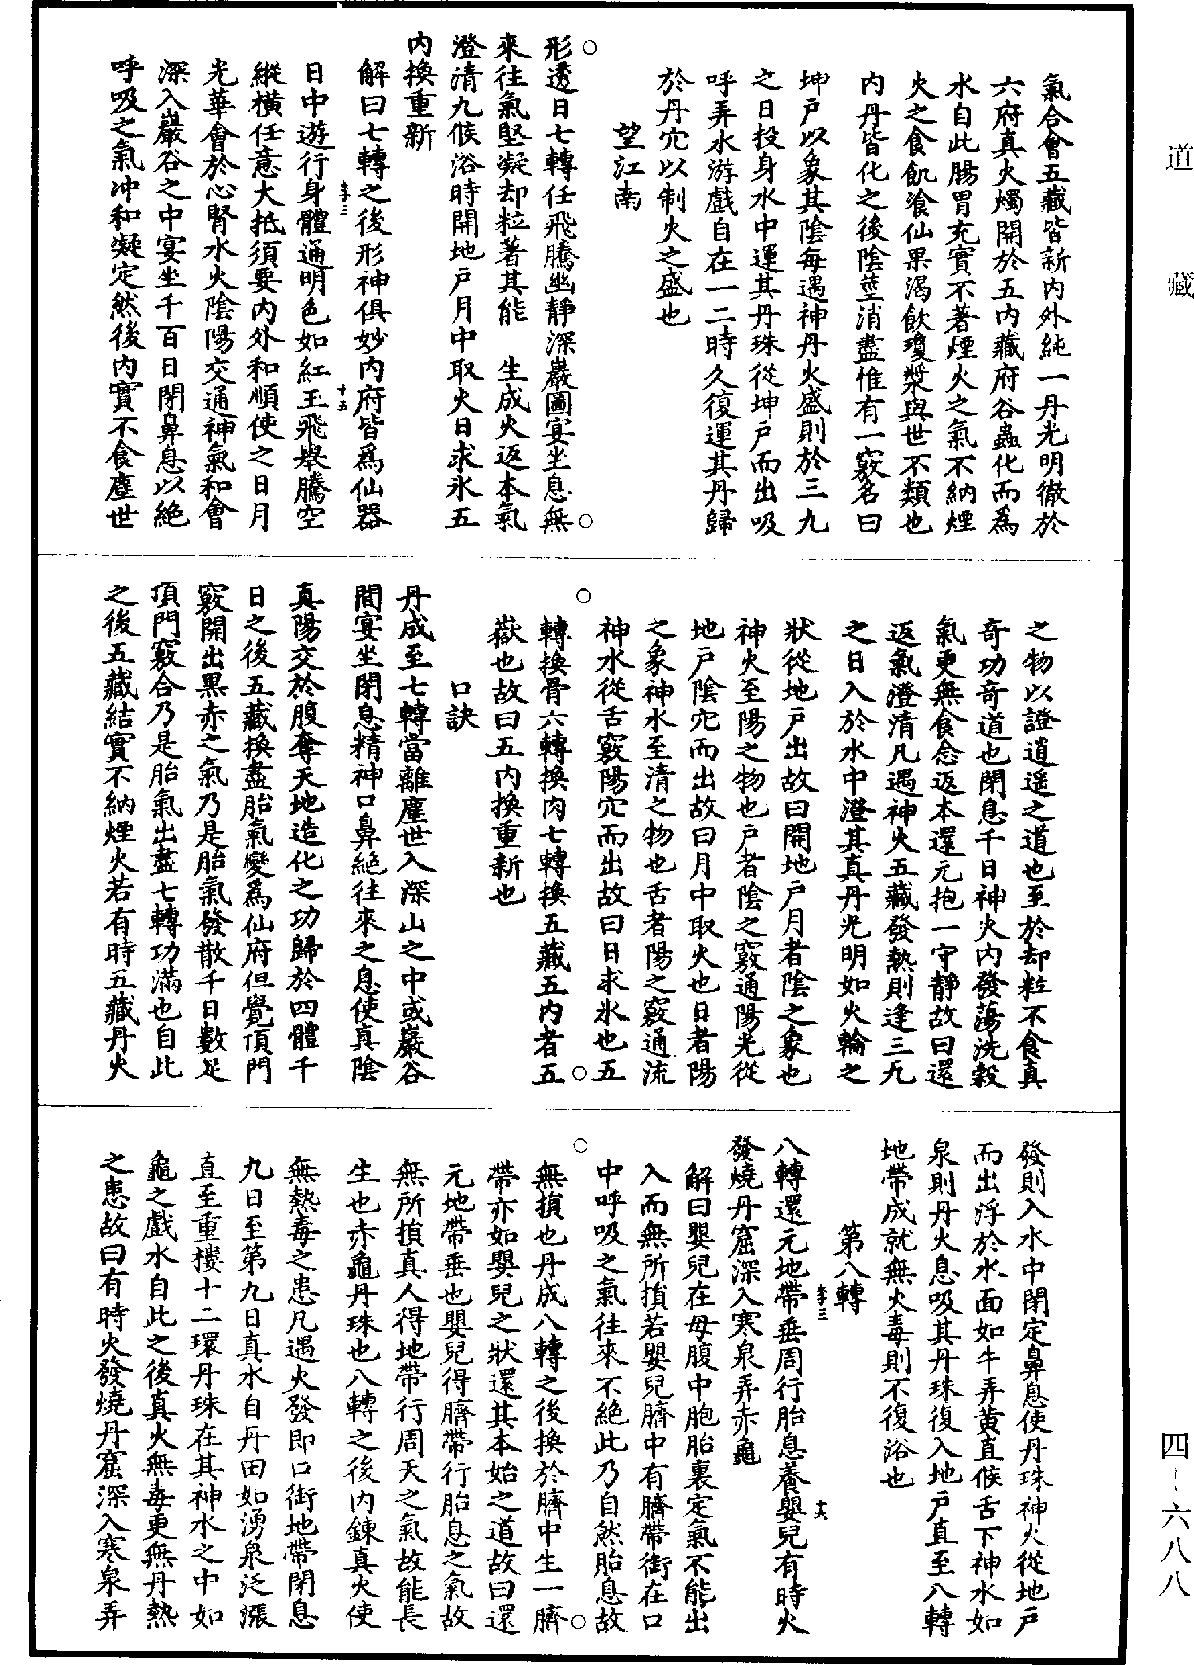 道藏
四-六八八
氣合會五藏皆新內外純一丹光明徹於
六府真火燭開於五內藏府谷蟲化而為
水自此腸胃充實不著煙火之氣不納煙
火之食飢飡仙果渴飲瓊漿與世不類也
內丹皆化之後陰莖消盡惟有一竅名曰
坤戶以象其陰每遇神丹火盛則於三九
之日投身水中運其丹珠從坤戶而出吸
呼弄水游戲自在一二時久復運其丹歸
於丹穴以制火之盛也
望江南
形透日七轉任飛騰幽靜深巖圖宴坐息無
來往氣堅凝却粒著其能 生成火返本氣
澄清九候浴時開地戶月中取火日求氷五
內換重新
解曰七轉之後形神俱妙內府皆為仙器
李三
十五
日中遊行身體通明色如紅玉飛舉騰空
縱橫任意大抵須要內外和順使之日月
光華會於心腎水火陰陽交通神氣和會
深入巖谷之中宴坐千百日閉鼻息以絕
呼吸之氣冲和凝定然後內實不食塵世
之物以證逍遥之道也至於却粒不食真
奇功奇道也閉息千日神火內發蕩洗穀
氣更無食念返本還元抱一守靜故曰還
返氣澄清凡遇神火五藏發熱則逢三九
之日入於水中澄其真丹光明如火輪之
狀從地戶出故曰開地戶月者陰之象也
神火至陽之物也戶者陰之竅通陽光從
地戶陰穴而出故曰月中取火也日者陽
之象神水至清之物也舌者陽之竅通流
神水從舌竅陽穴而出故曰日求氷也五
轉換骨六轉換肉七轉換五藏五內者五
嶽也故曰五內換重新也
口訣
丹成至七轉當離塵世入深山之中或巖谷
間宴坐閉息精神口鼻絕往來之息使真陰
真陽交於腹奪天地造化之功歸於四體千
日之後五藏換盡胎氣變為仙府但覺頂門
竅開出黑赤之氣乃是胎氣發散千日數足
頂門竅合乃是胎氣出盡七轉功滿也自此
之後五藏結實不納煙火若有時五藏丹火
發則入水中閉定鼻息使丹珠神火從地戶
而出浮於水面如牛弄黃直候舌下神水如
泉則丹火息吸其丹珠復入地戶直至八轉
地帶成就無火毒則不復浴也
第八轉
李三
十六
八轉還元地帶垂周行胎息養嬰兒有時火
發燒丹窟深入寒泉弄赤龜
解曰嬰兒在母腹中胞胎裏定氣不能出
入而無所損若嬰兒臍中有臍帶銜在口
中呼吸之氣往來不絕此乃自然胎息故
無損也丹成八轉之後換於臍中生一臍
帶亦如嬰兒之狀還其本始之道故曰還
元地帶垂也嬰兒得臍帶行胎息之氣故
無所損真人得地帶行周天之氣故能長
生也赤龜丹珠也八轉之後內鍊真火使
無熱毒之患凡遇火發即口銜地帶閉息
九日至第九日真水自丹田如湧泉泛漲
直至重樓十二環丹珠在其神水之中如
龜之戲水自此之後真火無毒更無丹熱
之患故曰有時火發燒丹窟深入寒泉弄